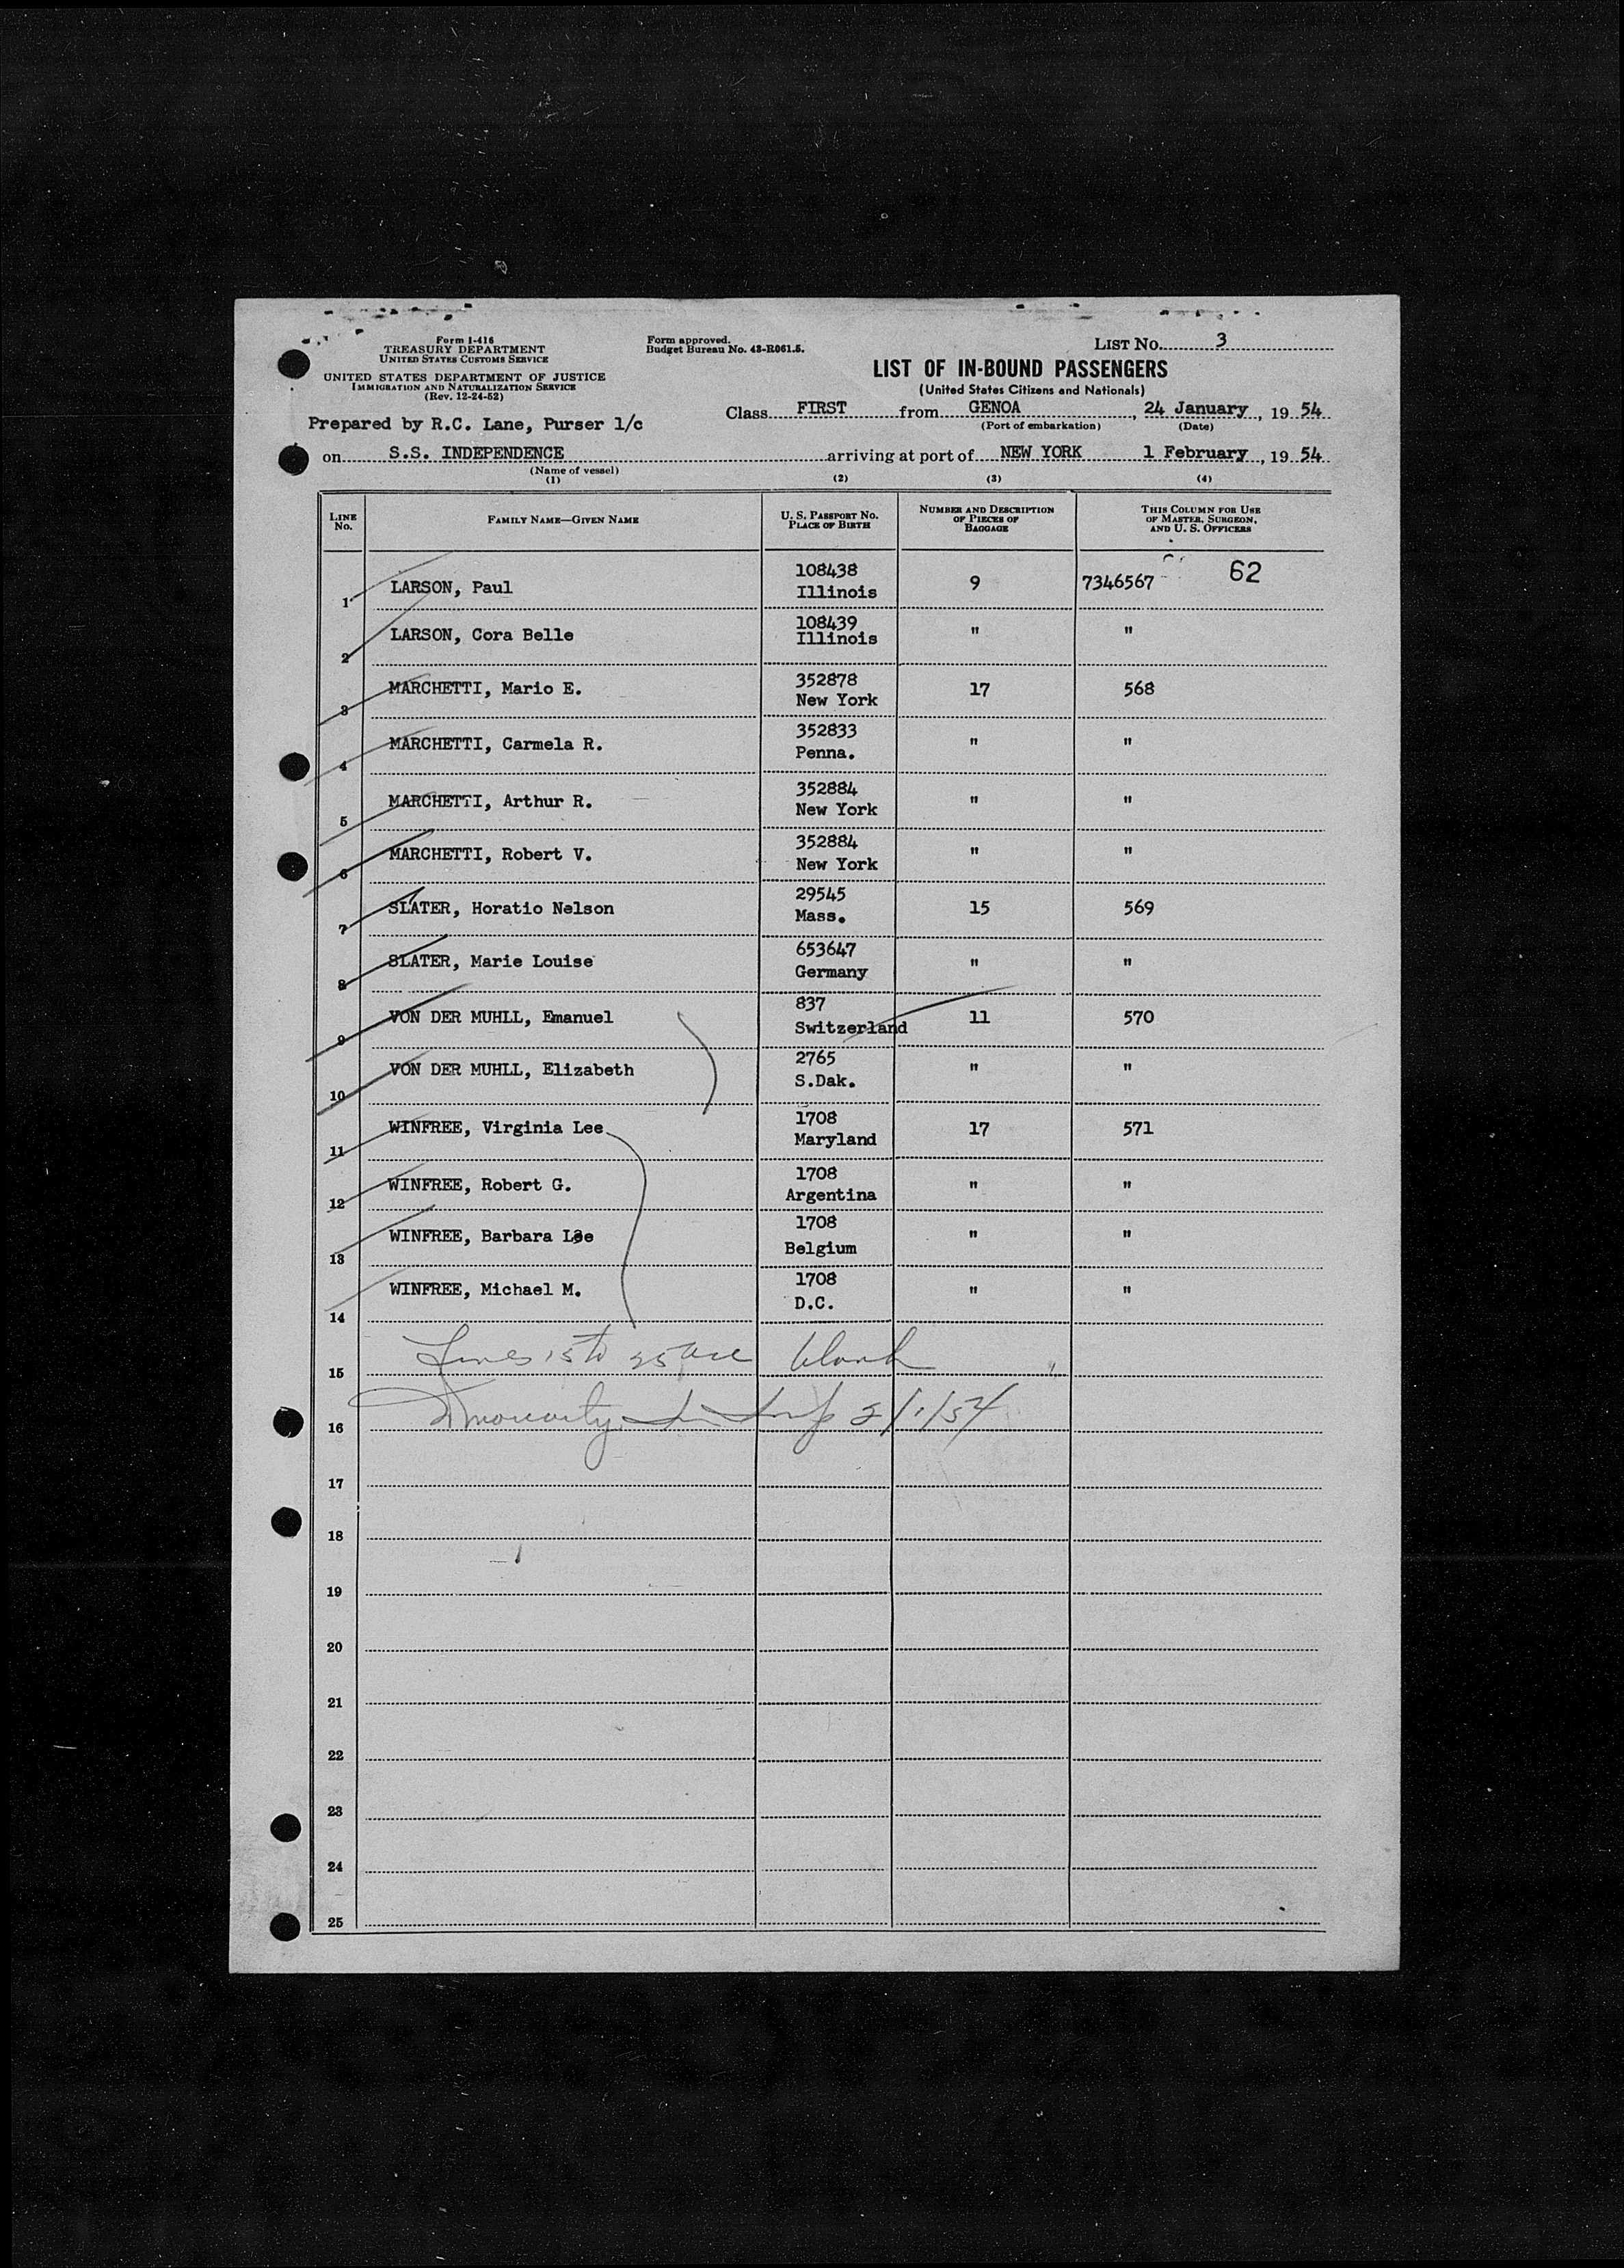 Form I-416
TREASURY DEPARTMENT
UNITED STATES CUSTOMS SERVICE
UNITED STATES DEPARTMENT OF JUSTICE
IMMIGRATION AND NATURALIZATION SERVICE
(Rev. 12-24-52)
Form approved.
Budget Bureau No. 43-R061.5.
LIST No. 3
LIST OF IN-BOUND PASSENGERS
(United States Citizens and Nationals)
Prepared by R.C. Lane, Purser 1/c
Class FIRST from GENOA, 24 January, 19 54
(Port of embarkation) (Date)
on S.S. INDEPENDENCE arriving at port of NEW YORK 1 February, 19 54
(Name of vessel)
(1) (2) (3) (4)
LINE No. FAMILY NAME—GIVEN NAME U. S. PASSPORT No. PLACE OF BIRTH NUMBER AND DESCRIPTION OF PIECES OF BAGGAGE THIS COLUMN FOR USE OF MASTER, SURGEON, AND U. S. OFFICERS
62
1 LARSON, Paul 108438 Illinois 9 7346567
2 LARSON, Cora Belle 108439 Illinois " "
3 MARCHETTI, Mario E. 352878 New York 17 568
4 MARCHETTI, Carmela R. 352833 Penna. " "
5 MARCHETTI, Arthur R. 352884 New York " "
6 MARCHETTI, Robert V. 352884 New York " "
7 SLATER, Horatio Nelson 29545 Mass. 15 569
8 SLATER, Marie Louise 653647 Germany " "
9 VON DER MUHLL, Emanuel 837 Switzerland 11 570
10 VON DER MUHLL, Elizabeth 2765 S.Dak. " "
11 WINFREE, Virginia Lee 1708 Maryland 17 571
12 WINFREE, Robert G. 1708 Argentina " "
13 WINFREE, Barbara Lee 1708 Belgium " "
14 WINFREE, Michael M. 1708 D.C. " "
15 Lines 15 to 25 are blank
16 2/1/54
17
18
19
20
21
22
23
24
25